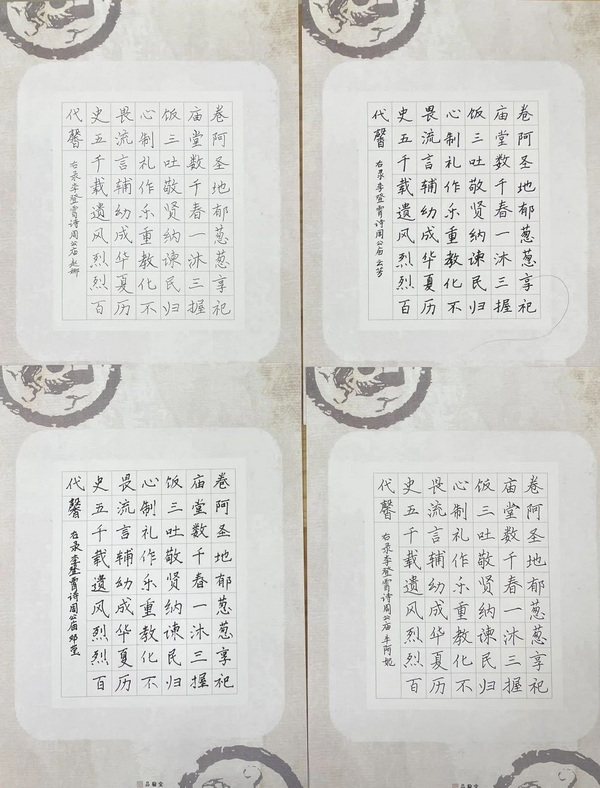 卷阿圣地郁葱葱享祀
庙堂数千春一沐三握
饭三吐敬贤纳谏民归
心制礼作乐重教化不
畏流言辅幼成华夏历
史五千载遗风烈烈百
代馨
右录李登霄诗周公庙 赵娜
卷阿圣地郁葱葱享祀
庙堂数千春一沐三握
饭三吐敬贤纳谏民归
心制礼作乐重教化不
畏流言辅幼成华夏历
史五千载遗风烈烈百
代馨
右录李登霄诗周公庙 云芳
卷阿圣地郁葱葱享祀
庙堂数千春一沐三握
饭三吐敬贤纳谏民归
心制礼作乐重教化不
畏流言辅幼成华夏历
史五千载遗风烈烈百
代馨
右录李登霄诗周公庙
卷阿圣地郁葱葱享祀
庙堂数千春一沐三握
饭三吐敬贤纳谏民归
心制礼作乐重教化不
畏流言辅幼成华夏历
史五千载遗风烈烈百
代馨
右录李登霄诗周公庙